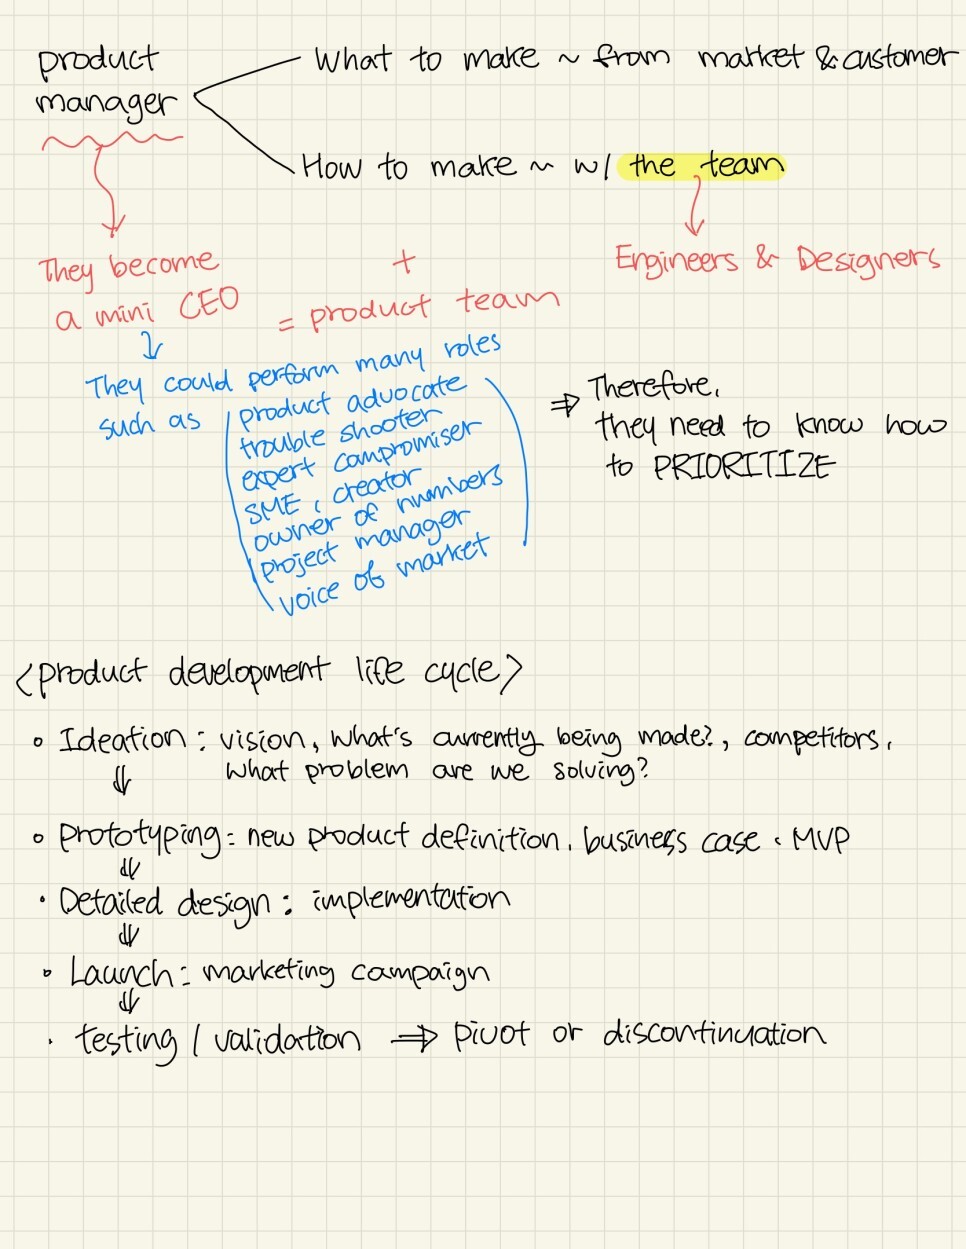 product
manager
What to make ~ from market & customer
How to make ~ w/ the team
They become
a mini CEO
+
= product team
Engineers & Designers
They could perform many roles
such as
product advocate
trouble shooter
expert compromiser
SME, creator
owner of numbers
project manager
voice of market
⇒ Therefore,
they need to know how
to PRIORITIZE
<product development life cycle>
• Ideation: vision, what's currently being made?, competitors,
what problem are we solving?
• Prototyping: new product definition, business case, MVP
• Detailed design: implementation
• Launch: marketing campaign
• testing / validation ⇒ pivot or discontinuation